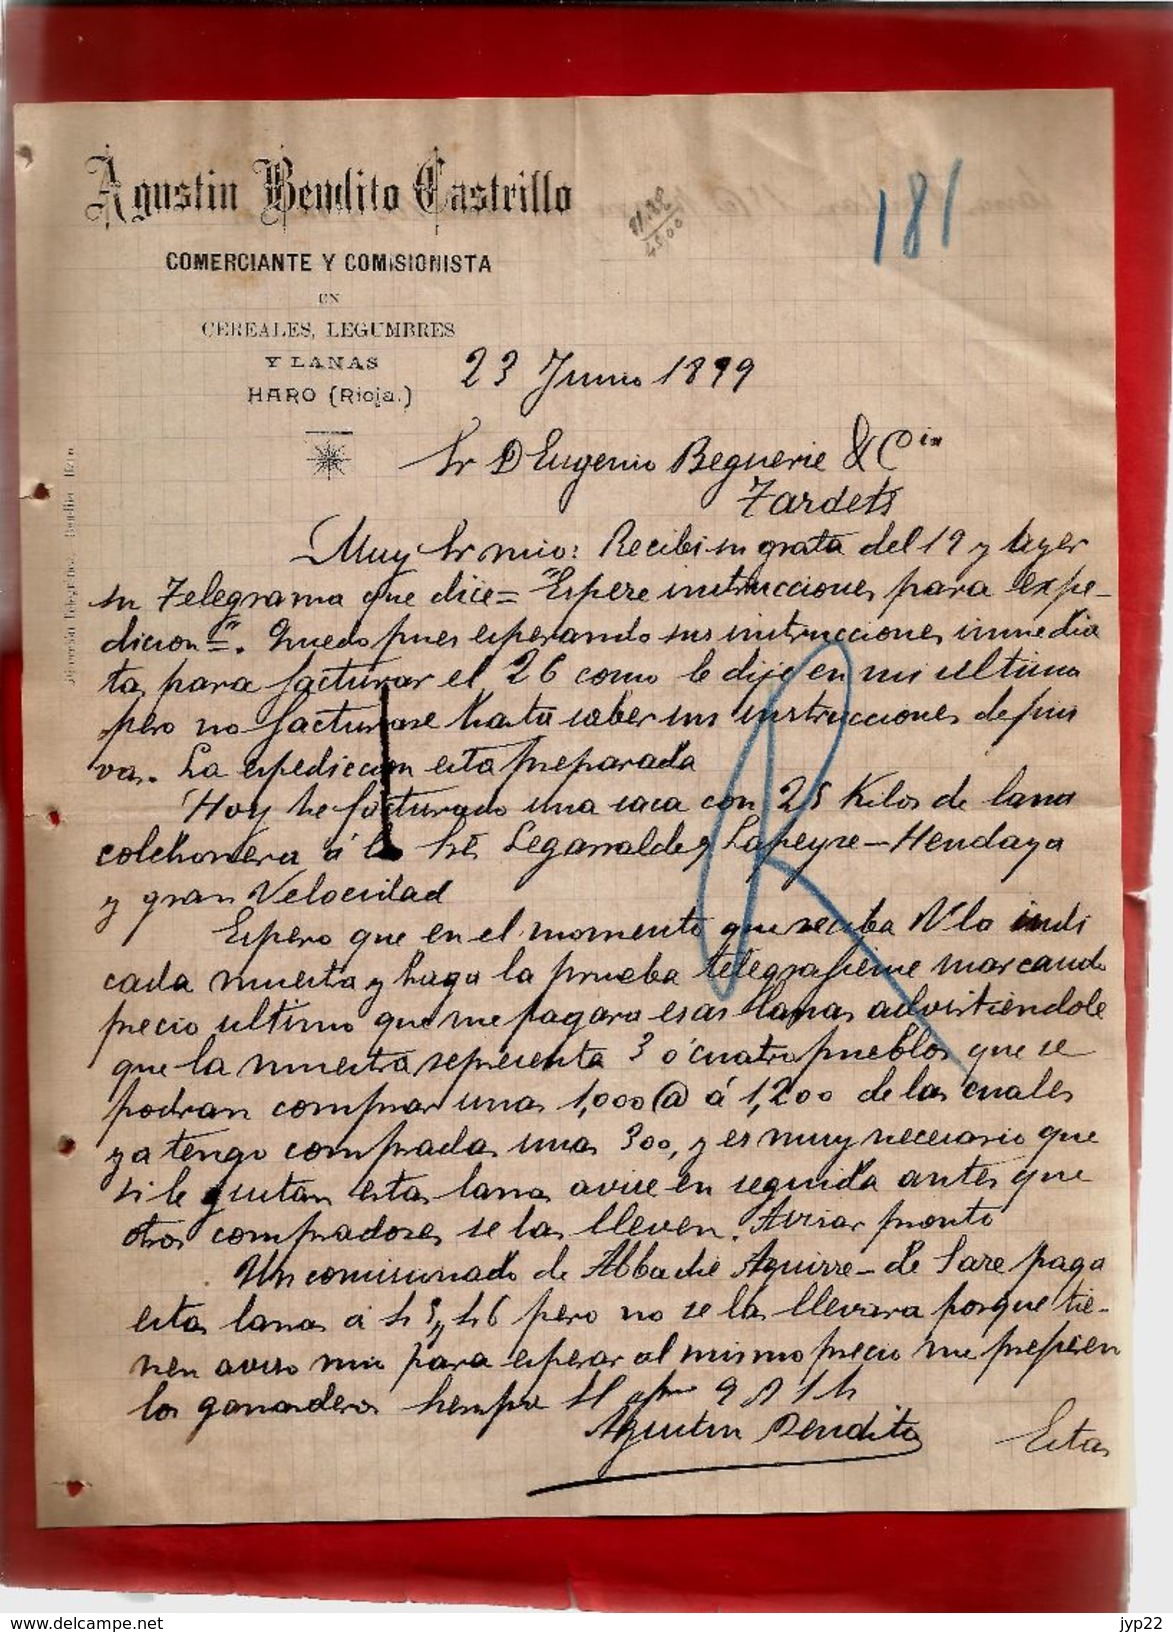 Agustin Bendito Castrillo
181
COMERCIANTE Y COMISIONISTA
EN
CEREALES, LEGUMBRES
Y LANAS
HARO (Rioja.)
23 Junio 1899
Sr D Eugenio Beguerie & Cia
Tardets
Muy Sr mio: Recibi su grata del 19 y ayer
su Telegrama que dice = "Espere instrucciones para expe-
dicion"=. Quedo pues esperando sus instrucciones inmedia
tas para facturar el 26 como le dije en mi ultima
pero no facturare hasta saber sus instrucciones
vas. La espedicion esta preparada
Hoy he facturado una saca con 25 Kilos de lana
colchonera á los Sres Legarralde y Lapeyre - Hendaya
y gran Velocidad
Espero que en el momento que reciba V la indi
cada muestra y haga la prueba telegrafieme marcando
precio ultimo que me pagara esas lanas advirtiendole
que la muestra representa 3 ó cuatro pueblos que se
podran comprar unas 1,000 @ á 1,200 de las cuales
ya tengo compradas unas 300, y es muy necesario que
si le gustan estas lanas avise en seguida antes que
otros compradores se las lleven. Avisar pronto
Un comisionado de Abbadie Aguirre - de Sare paga
estas lanas á 55 y 56 pero no se las llevara porque tie-
nen aviso mio para esperar al mismo precio me prefieren
los ganaderos Siempre
Agustin Bendito
Estas
delcampe.net
jyp22